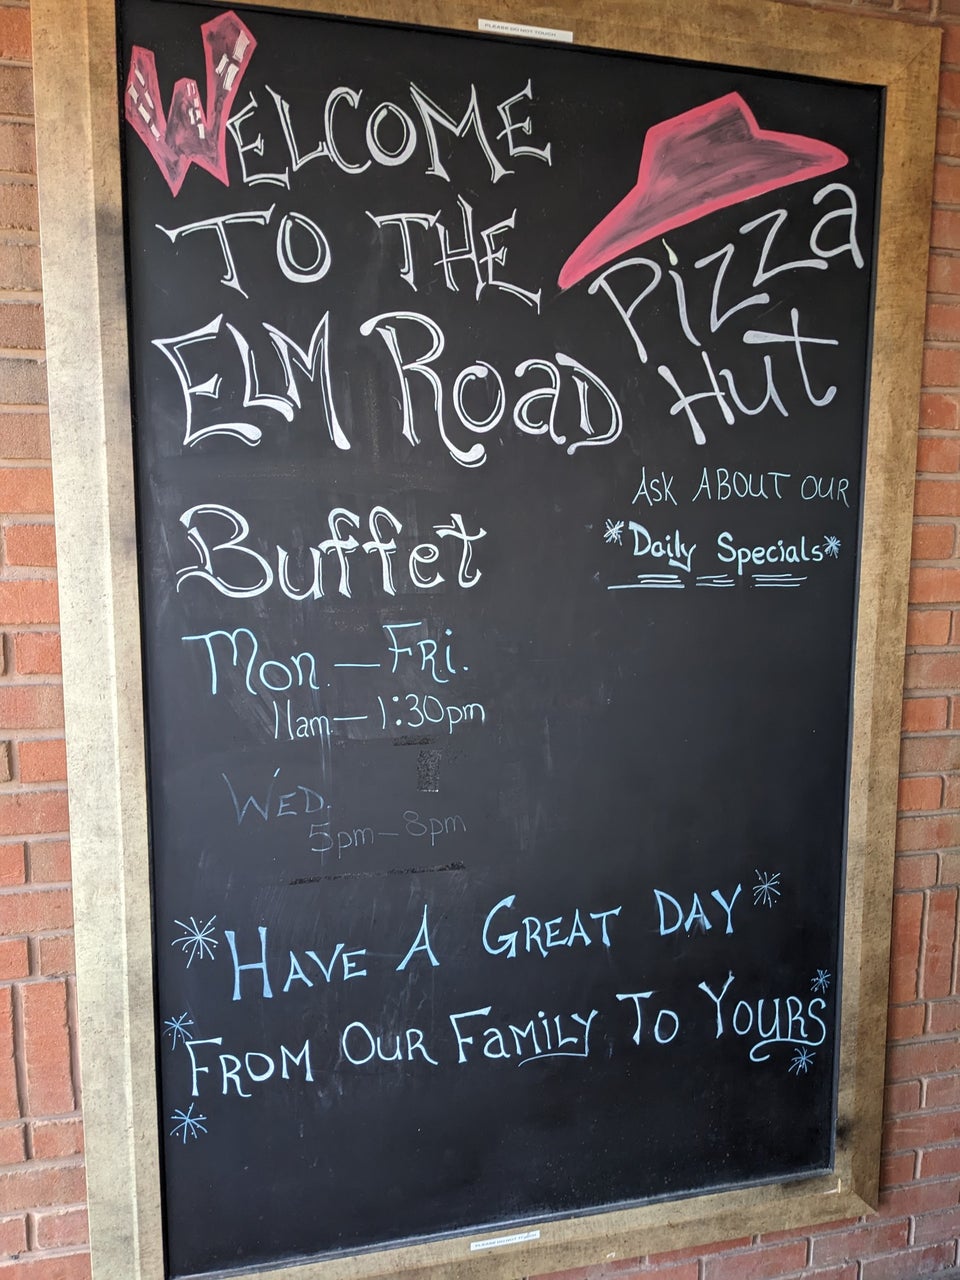 PLEASE DO NOT TOUCH
WELCOME
TO THE
ELM ROAD
Pizza
Hut
ASK ABOUT OUR
*Daily Specials*
Buffet
Mon. — FRi.
11am — 1:30pm
WED.
5pm - 8pm
*HAVE A GREAT DAY*
*FROM OUR FAMiLY TO YOURS*
PLEASE DO NOT TOUCH